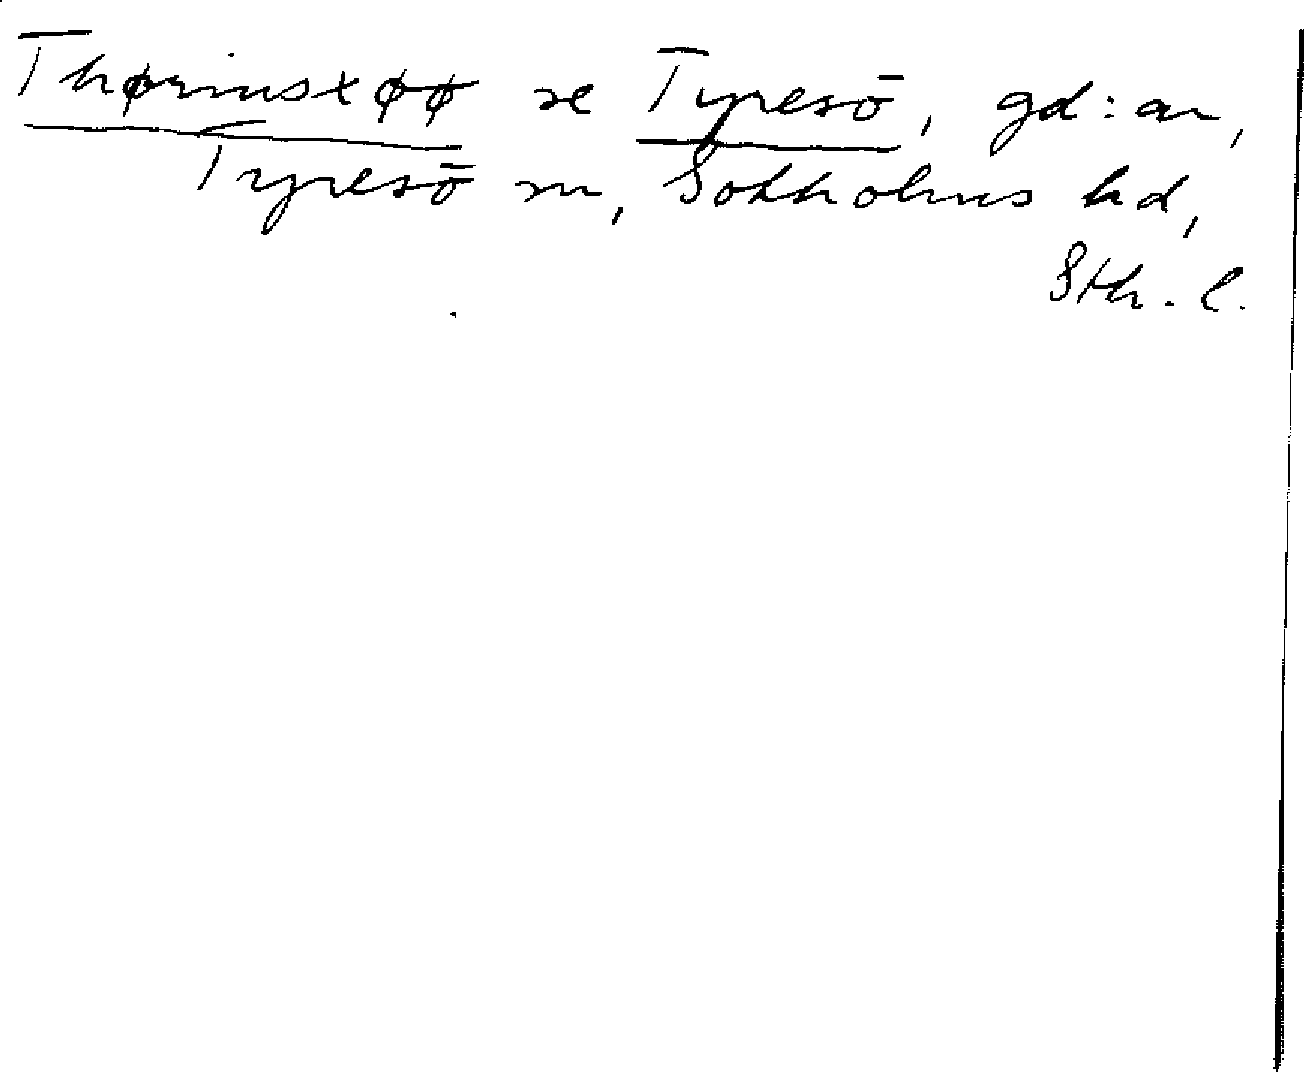 Thørinsxøø se Tyresö, gd:ar,
Tyresö sn, Sotholms hd,
Sth. l.